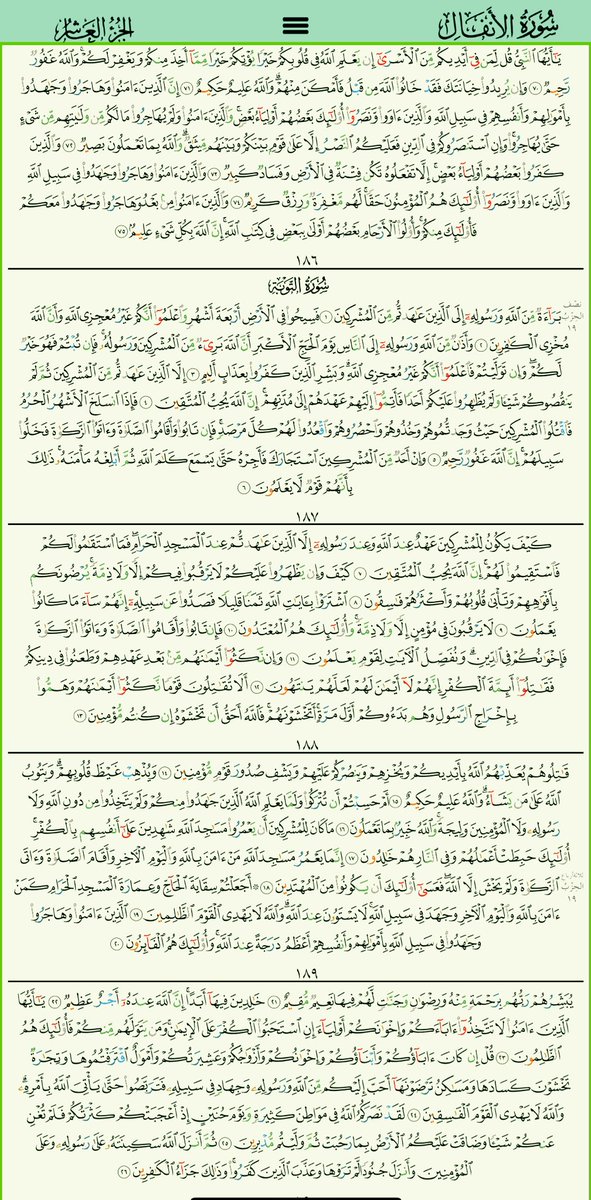 سُورَةُ الأَنفَالِ الجُزْءُ العَاشِرُ
يَٰٓأَيُّهَا ٱلنَّبِيُّ قُل لِّمَن فِيٓ أَيۡدِيكُم مِّنَ ٱلۡأَسۡرَىٰٓ إِن يَعۡلَمِ ٱللَّهُ فِي قُلُوبِكُمۡ خَيۡرٗا يُؤۡتِكُمۡ خَيۡرٗا مِّمَّآ أُخِذَ مِنكُمۡ وَيَغۡفِرۡ لَكُمۡۚ وَٱللَّهُ غَفُورٞ
رَّحِيمٞ ٧٠ وَإِن يُرِيدُواْ خِيَانَتَكَ فَقَدۡ خَانُواْ ٱللَّهَ مِن قَبۡلُ فَأَمۡكَنَ مِنۡهُمۡۗ وَٱللَّهُ عَلِيمٌ حَكِيمٌ ٧١ إِنَّ ٱلَّذِينَ ءَامَنُواْ وَهَاجَرُواْ وَجَٰهَدُواْ
بِأَمۡوَٰلِهِمۡ وَأَنفُسِهِمۡ فِي سَبِيلِ ٱللَّهِ وَٱلَّذِينَ ءَاوَواْ وَّنَصَرُوٓاْ أُوْلَٰٓئِكَ بَعۡضُهُمۡ أَوۡلِيَآءُ بَعۡضٖۚ وَٱلَّذِينَ ءَامَنُواْ وَلَمۡ يُهَاجِرُواْ مَا لَكُم مِّن وَلَٰيَتِهِم مِّن شَيۡءٍ
حَتَّىٰ يُهَاجِرُواْۚ وَإِنِ ٱسۡتَنصَرُوكُمۡ فِي ٱلدِّينِ فَعَلَيۡكُمُ ٱلنَّصۡرُ إِلَّا عَلَىٰ قَوۡمِۭ بَيۡنَكُمۡ وَبَيۡنَهُم مِّيثَٰقٞۗ وَٱللَّهُ بِمَا تَعۡمَلُونَ بَصِيرٞ ٧٢ وَٱلَّذِينَ
كَفَرُواْ بَعۡضُهُمۡ أَوۡلِيَآءُ بَعۡضٍۚ إِلَّا تَفۡعَلُوهُ تَكُن فِتۡنَةٞ فِي ٱلۡأَرۡضِ وَفَسَادٞ كَبِيرٞ ٧٣ وَٱلَّذِينَ ءَامَنُواْ وَهَاجَرُواْ وَجَٰهَدُواْ فِي سَبِيلِ ٱللَّهِ
وَٱلَّذِينَ ءَاوَواْ وَّنَصَرُوٓاْ أُوْلَٰٓئِكَ هُمُ ٱلۡمُؤۡمِنُونَ حَقّٗاۚ لَّهُم مَّغۡفِرَةٞ وَرِزۡقٞ كَرِيمٞ ٧٤ وَٱلَّذِينَ ءَامَنُواْ مِنۢ بَعۡدُ وَهَاجَرُواْ وَجَٰهَدُواْ مَعَكُمۡ
فَأُوْلَٰٓئِكَ مِنكُمۡۚ وَأُوْلُواْ ٱلۡأَرۡحَامِ بَعۡضُهُمۡ أَوۡلَىٰ بِبَعۡضٖ فِي كِتَٰبِ ٱللَّهِۚ إِنَّ ٱللَّهَ بِكُلِّ شَيۡءٍ عَلِيمُۢ ٧٥
١٨٦
سُورَةُ التَّوۡبَةِ
نصف الحزب ١٩
بَرَآءَةٞ مِّنَ ٱللَّهِ وَرَسُولِهِۦٓ إِلَى ٱلَّذِينَ عَٰهَدتُّم مِّنَ ٱلۡمُشۡرِكِينَ ١ فَسِيحُواْ فِي ٱلۡأَرۡضِ أَرۡبَعَةَ أَشۡهُرٖ وَٱعۡلَمُوٓاْ أَنَّكُمۡ غَيۡرُ مُعۡجِزِي ٱللَّهِ وَأَنَّ ٱللَّهَ
مُخۡزِي ٱلۡكَٰفِرِينَ ٢ وَأَذَٰنٞ مِّنَ ٱللَّهِ وَرَسُولِهِۦٓ إِلَى ٱلنَّاسِ يَوۡمَ ٱلۡحَجِّ ٱلۡأَكۡبَرِ أَنَّ ٱللَّهَ بَرِيٓءٞ مِّنَ ٱلۡمُشۡرِكِينَ وَرَسُولُهُۥۚ فَإِن تُبۡتُمۡ فَهُوَ خَيۡرٞ
لَّكُمۡۖ وَإِن تَوَلَّيۡتُمۡ فَٱعۡلَمُوٓاْ أَنَّكُمۡ غَيۡرُ مُعۡجِزِي ٱللَّهِۗ وَبَشِّرِ ٱلَّذِينَ كَفَرُواْ بِعَذَابٍ أَلِيمٍ ٣ إِلَّا ٱلَّذِينَ عَٰهَدتُّم مِّنَ ٱلۡمُشۡرِكِينَ ثُمَّ لَمۡ
يَنقُصُوكُمۡ شَيۡـٔٗا وَلَمۡ يُظَٰهِرُواْ عَلَيۡكُمۡ أَحَدٗا فَأَتِمُّوٓاْ إِلَيۡهِمۡ عَهۡدَهُمۡ إِلَىٰ مُدَّتِهِمۡۚ إِنَّ ٱللَّهَ يُحِبُّ ٱلۡمُتَّقِينَ ٤ فَإِذَا ٱنسَلَخَ ٱلۡأَشۡهُرُ ٱلۡحُرُمُ
فَٱقۡتُلُواْ ٱلۡمُشۡرِكِينَ حَيۡثُ وَجَدتُّمُوهُمۡ وَخُذُوهُمۡ وَٱحۡصُرُوهُمۡ وَٱقۡعُدُواْ لَهُمۡ كُلَّ مَرۡصَدٖۚ فَإِن تَابُواْ وَأَقَامُواْ ٱلصَّلَوٰةَ وَءَاتَوُاْ ٱلزَّكَوٰةَ فَخَلُّواْ
سَبِيلَهُمۡۚ إِنَّ ٱللَّهَ غَفُورٞ رَّحِيمٞ ٥ وَإِنۡ أَحَدٞ مِّنَ ٱلۡمُشۡرِكِينَ ٱسۡتَجَارَكَ فَأَجِرۡهُ حَتَّىٰ يَسۡمَعَ كَلَٰمَ ٱللَّهِ ثُمَّ أَبۡلِغۡهُ مَأۡمَنَهُۥۚ ذَٰلِكَ
بِأَنَّهُمۡ قَوۡمٞ لَّا يَعۡلَمُونَ ٦
١٨٧
كَيۡفَ يَكُونُ لِلۡمُشۡرِكِينَ عَهۡدٌ عِندَ ٱللَّهِ وَعِندَ رَسُولِهِۦٓ إِلَّا ٱلَّذِينَ عَٰهَدتُّمۡ عِندَ ٱلۡمَسۡجِدِ ٱلۡحَرَامِۖ فَمَا ٱسۡتَقَٰمُواْ لَكُمۡ
فَٱسۡتَقِيمُواْ لَهُمۡۚ إِنَّ ٱللَّهَ يُحِبُّ ٱلۡمُتَّقِينَ ٧ كَيۡفَ وَإِن يَظۡهَرُواْ عَلَيۡكُمۡ لَا يَرۡقُبُواْ فِيكُمۡ إِلّٗا وَلَا ذِمَّةٗۚ يُرۡضُونَكُم
بِأَفۡوَٰهِهِمۡ وَتَأۡبَىٰ قُلُوبُهُمۡ وَأَكۡثَرُهُمۡ فَٰسِقُونَ ٨ ٱشۡتَرَوۡاْ بِـَٔايَٰتِ ٱللَّهِ ثَمَنٗا قَلِيلٗا فَصَدُّواْ عَن سَبِيلِهِۦٓۚ إِنَّهُمۡ سَآءَ مَا كَانُواْ
يَعۡمَلُونَ ٩ لَا يَرۡقُبُونَ فِي مُؤۡمِنٍ إِلّٗا وَلَا ذِمَّةٗۚ وَأُوْلَٰٓئِكَ هُمُ ٱلۡمُعۡتَدُونَ ١٠ فَإِن تَابُواْ وَأَقَامُواْ ٱلصَّلَوٰةَ وَءَاتَوُاْ ٱلزَّكَوٰةَ
فَإِخۡوَٰنُكُمۡ فِي ٱلدِّينِۗ وَنُفَصِّلُ ٱلۡأٓيَٰتِ لِقَوۡمٖ يَعۡلَمُونَ ١١ وَإِن نَّكَثُوٓاْ أَيۡمَٰنَهُم مِّنۢ بَعۡدِ عَهۡدِهِمۡ وَطَعَنُواْ فِي دِينِكُمۡ
فَقَٰتِلُوٓاْ أَئِمَّةَ ٱلۡكُفۡرِ إِنَّهُمۡ لَآ أَيۡمَٰنَ لَهُمۡ لَعَلَّهُمۡ يَنتَهُونَ ١٢ أَلَا تُقَٰتِلُونَ قَوۡمٗا نَّكَثُوٓاْ أَيۡمَٰنَهُمۡ وَهَمُّواْ
بِإِخۡرَاجِ ٱلرَّسُولِ وَهُم بَدَءُوكُمۡ أَوَّلَ مَرَّةٍۚ أَتَخۡشَوۡنَهُمۡۚ فَٱللَّهُ أَحَقُّ أَن تَخۡشَوۡهُ إِن كُنتُم مُّؤۡمِنِينَ ١٣
١٨٨
قَٰتِلُوهُمۡ يُعَذِّبۡهُمُ ٱللَّهُ بِأَيۡدِيكُمۡ وَيُخۡزِهِمۡ وَيَنصُرۡكُمۡ عَلَيۡهِمۡ وَيَشۡفِ صُدُورَ قَوۡمٖ مُّؤۡمِنِينَ ١٤ وَيُذۡهِبۡ غَيۡظَ قُلُوبِهِمۡۗ وَيَتُوبُ
ٱللَّهُ عَلَىٰ مَن يَشَآءُۗ وَٱللَّهُ عَلِيمٌ حَكِيمٌ ١٥ أَمۡ حَسِبۡتُمۡ أَن تُتۡرَكُواْ وَلَمَّا يَعۡلَمِ ٱللَّهُ ٱلَّذِينَ جَٰهَدُواْ مِنكُمۡ وَلَمۡ يَتَّخِذُواْ مِن دُونِ ٱللَّهِ وَلَا
رَسُولِهِۦ وَلَا ٱلۡمُؤۡمِنِينَ وَلِيجَةٗۚ وَٱللَّهُ خَبِيرُۢ بِمَا تَعۡمَلُونَ ١٦ مَا كَانَ لِلۡمُشۡرِكِينَ أَن يَعۡمُرُواْ مَسَٰجِدَ ٱللَّهِ شَٰهِدِينَ عَلَىٰٓ أَنفُسِهِم بِٱلۡكُفۡرِۚ
أُوْلَٰٓئِكَ حَبِطَتۡ أَعۡمَٰلُهُمۡ وَفِي ٱلنَّارِ هُمۡ خَٰلِدُونَ ١٧ إِنَّمَا يَعۡمُرُ مَسَٰجِدَ ٱللَّهِ مَنۡ ءَامَنَ بِٱللَّهِ وَٱلۡيَوۡمِ ٱلۡأٓخِرِ وَأَقَامَ ٱلصَّلَوٰةَ وَءَاتَى
ثلاثة أرباع الحزب ١٩
ٱلزَّكَوٰةَ وَلَمۡ يَخۡشَ إِلَّا ٱللَّهَۖ فَعَسَىٰٓ أُوْلَٰٓئِكَ أَن يَكُونُواْ مِنَ ٱلۡمُهۡتَدِينَ ١٨ ۞ أَجَعَلۡتُمۡ سِقَايَةَ ٱلۡحَآجِّ وَعِمَارَةَ ٱلۡمَسۡجِدِ ٱلۡحَرَامِ كَمَنۡ
ءَامَنَ بِٱللَّهِ وَٱلۡيَوۡمِ ٱلۡأٓخِرِ وَجَٰهَدَ فِي سَبِيلِ ٱللَّهِۚ لَا يَسۡتَوُۥنَ عِندَ ٱللَّهِۗ وَٱللَّهُ لَا يَهۡدِي ٱلۡقَوۡمَ ٱلظَّٰلِمِينَ ١٩ ٱلَّذِينَ ءَامَنُواْ وَهَاجَرُواْ
وَجَٰهَدُواْ فِي سَبِيلِ ٱللَّهِ بِأَمۡوَٰلِهِمۡ وَأَنفُسِهِمۡ أَعۡظَمُ دَرَجَةً عِندَ ٱللَّهِۚ وَأُوْلَٰٓئِكَ هُمُ ٱلۡفَآئِزُونَ ٢٠
١٨٩
يُبَشِّرُهُمۡ رَبُّهُم بِرَحۡمَةٖ مِّنۡهُ وَرِضۡوَٰنٖ وَجَنَّٰتٖ لَّهُمۡ فِيهَا نَعِيمٞ مُّقِيمٌ ٢١ خَٰلِدِينَ فِيهَآ أَبَدًاۚ إِنَّ ٱللَّهَ عِندَهُۥٓ أَجۡرٌ عَظِيمٞ ٢٢ يَٰٓأَيُّهَا
ٱلَّذِينَ ءَامَنُواْ لَا تَتَّخِذُوٓاْ ءَابَآءَكُمۡ وَإِخۡوَٰنَكُمۡ أَوۡلِيَآءَ إِنِ ٱسۡتَحَبُّواْ ٱلۡكُفۡرَ عَلَى ٱلۡإِيمَٰنِۚ وَمَن يَتَوَلَّهُم مِّنكُمۡ فَأُوْلَٰٓئِكَ هُمُ
ٱلظَّٰلِمُونَ ٢٣ قُلۡ إِن كَانَ ءَابَآؤُكُمۡ وَأَبۡنَآؤُكُمۡ وَإِخۡوَٰنُكُمۡ وَأَزۡوَٰجُكُمۡ وَعَشِيرَتُكُمۡ وَأَمۡوَٰلٌ ٱقۡتَرَفۡتُمُوهَا وَتِجَٰرَةٞ
تَخۡشَوۡنَ كَسَادَهَا وَمَسَٰكِنُ تَرۡضَوۡنَهَآ أَحَبَّ إِلَيۡكُم مِّنَ ٱللَّهِ وَرَسُولِهِۦ وَجِهَادٖ فِي سَبِيلِهِۦ فَتَرَبَّصُواْ حَتَّىٰ يَأۡتِيَ ٱللَّهُ بِأَمۡرِهِۦۗ
وَٱللَّهُ لَا يَهۡدِي ٱلۡقَوۡمَ ٱلۡفَٰسِقِينَ ٢٤ لَقَدۡ نَصَرَكُمُ ٱللَّهُ فِي مَوَاطِنَ كَثِيرَةٖ وَيَوۡمَ حُنَيۡنٍ إِذۡ أَعۡجَبَتۡكُمۡ كَثۡرَتُكُمۡ فَلَمۡ تُغۡنِ
عَنكُمۡ شَيۡـٔٗا وَضَاقَتۡ عَلَيۡكُمُ ٱلۡأَرۡضُ بِمَا رَحُبَتۡ ثُمَّ وَلَّيۡتُم مُّدۡبِرِينَ ٢٥ ثُمَّ أَنزَلَ ٱللَّهُ سَكِينَتَهُۥ عَلَىٰ رَسُولِهِۦ وَعَلَى
ٱلۡمُؤۡمِنِينَ وَأَنزَلَ جُنُودٗا لَّمۡ تَرَوۡهَا وَعَذَّبَ ٱلَّذِينَ كَفَرُواْۚ وَذَٰلِكَ جَزَآءُ ٱلۡكَٰفِرِينَ ٢٦